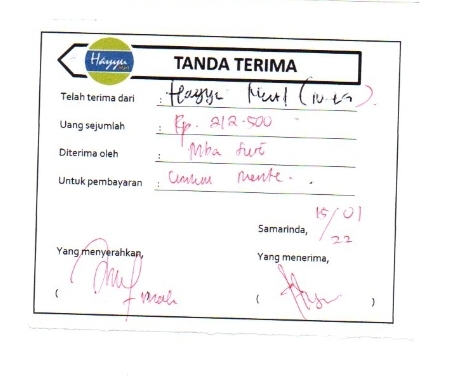 Hayyu
TANDA TERIMA
Telah terima dari : Hayyu
Uang sejumlah : Rp. 212.500
Diterima oleh : Mba
Untuk pembayaran : mente.
15/01
Samarinda, 22
Yang menyerahkan, Yang menerima,
( ( )